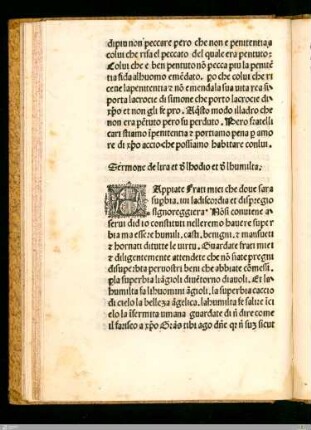 dipiu non peccare pero che non e penitentia a
colui che risa el peccato del quale era pentuto:
Colui che e ben pentuto nõ pecca piu la penitẽ
tia si da alhuomo emẽdato. po che colui che ri
ceue la penitentia e nõ emenda la sua uita rea si
porta la croce di simone che porto la croce di
xp̃o et non gli fe pro. A q̃sto modo il ladro che
non era pẽtuto pero fu perduto. Pero fratelli
cari stiamo ĩ penitentia e portiamo pena p amo
re di xp̃o accio che possiamo habitare con lui.
Sermone de lira et d̃ lhodio et d̃ lhumilta.
Appiate Frati miei che doue sara
supbia, iui la discordia et dispregio
signoreggiera. Nõsi conuiene a
serui di dio constituti nelleremo hauere super
bia ma esser humili, casti, benigni, et mansueti
et hornati di tutte le uirtu. Guardate frati miei
et diligentemente attendete che nõ siate pregni
di superbia per uostri beni che abbiate cõmessi.
p la superbia li ãgioli diuẽtorno diauoli. Et la
humilta fa li huomini ãgioli, la superbia caccio
di cielo la belleza ãgelica. la humilta fe salire ĩ ci
elo la ĩfermita umana guardate di nõ dire come
il fariseo a xp̃o Grãs tibi ago dñe qr nõ suz sicut